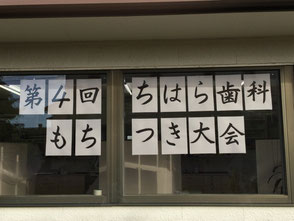 第4回 ちはら歯科
もち つき大会